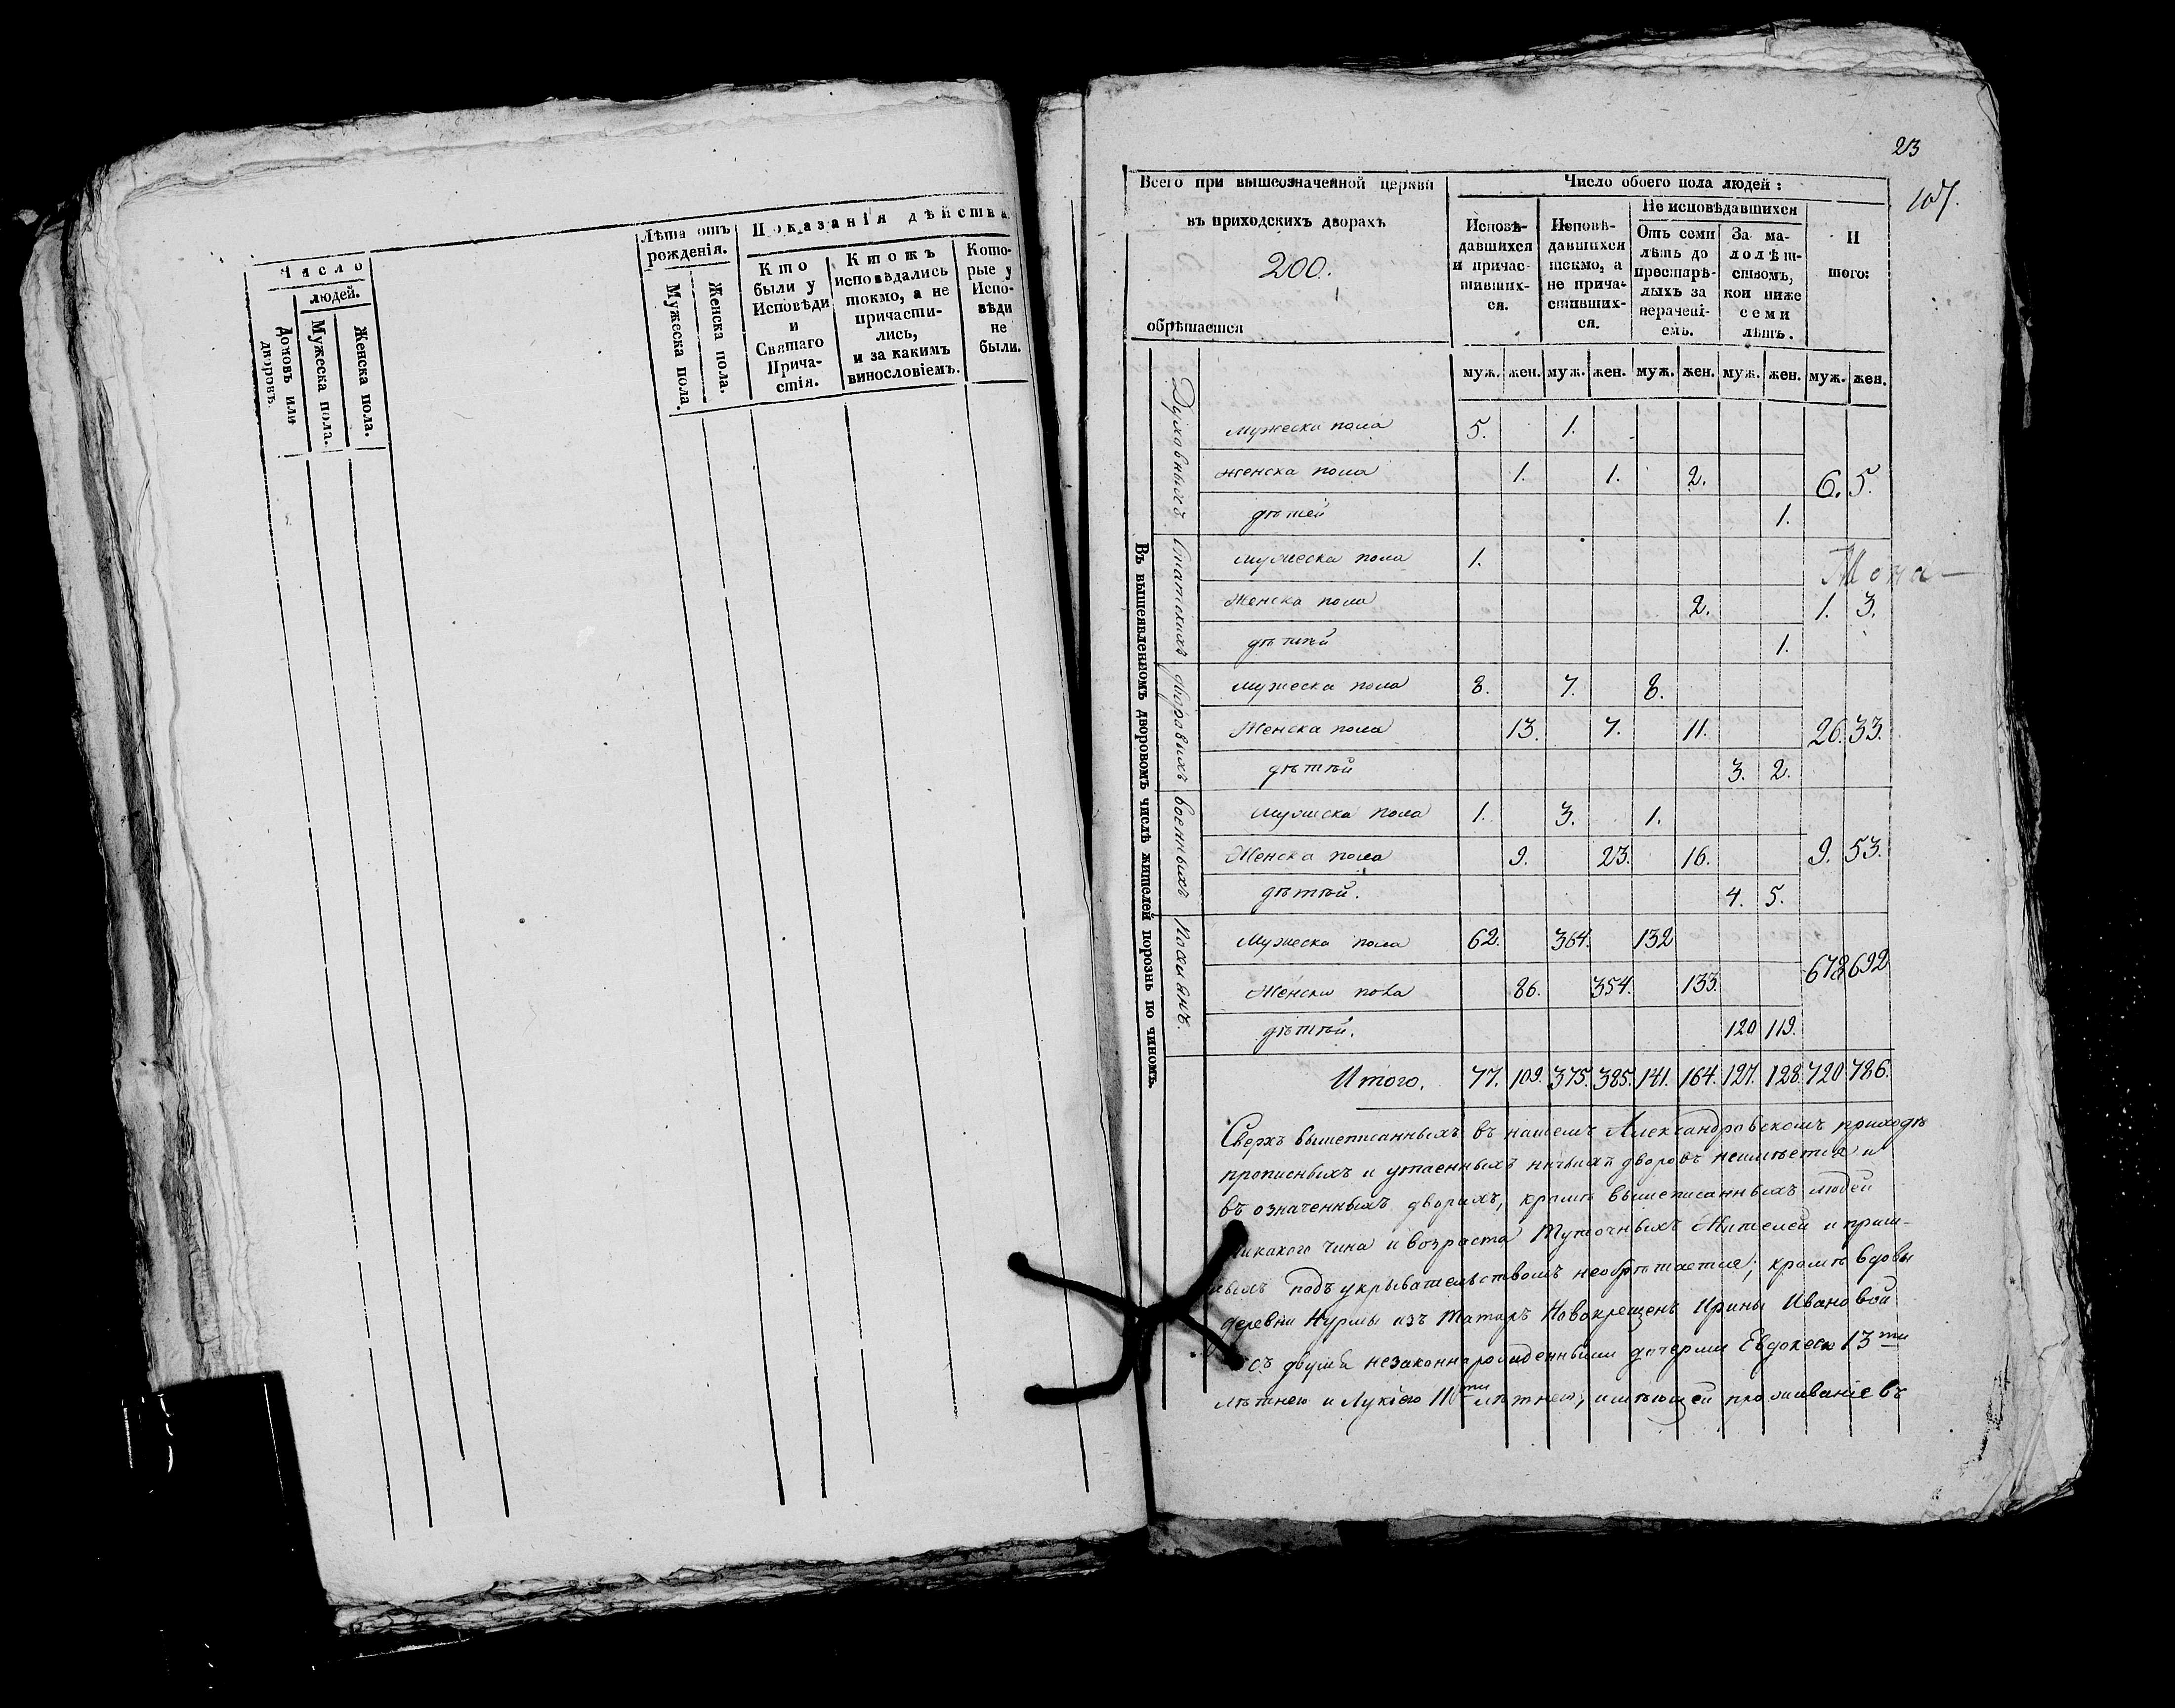 Число
людей.
Домовъ или дворовъ.
Мужеска пола.
Женска пола.
Лѣта отъ рожденія.
Мужеска пола.
Женска пола.
Показанія дѣйства
Кто были у Исповѣди и Святаго Прича-стія.
Ктожъ исповѣдались токмо, а не причасти-лись, и за какимъ винословіемъ.
Кото-рые у Испо-вѣди не были.
23
107.
Всего при вышеозначенной церкви
въ приходскихъ дворахъ
200.
обрѣтается
Число обоего пола людей:
Исповѣ-давшихся и причас-тивших-ся.
Исповѣ-давшихся токмо, а не прича-стивших-ся.
Не исповѣдавшихся
Отъ семи лѣтъ до престарѣ-лыхъ за нерачені-емъ.
За ма-лолѣт-ствомъ, кои ниже семи лѣтъ.
И того:
муж. жен. муж. жен. муж. жен. муж. жен. муж. жен.
Въ вышеявленномъ дворовомъ числѣ жителей порознь по чиномъ.
Духовныхъ
Мужеска пола 5. 1.
Женска пола 1. 1. 2. 6. 5.
дѣтей 1.
Статскихъ
Мужеска пола 1.
Женска пола 2. 1. 3.
дѣтей 1.
дворовыхъ
Мужеска пола 8. 7. 8.
Женска пола 13. 7. 11. 26. 33.
дѣтей 3. 2.
Военныхъ
Мужеска пола 1. 3. 1.
Женска пола 9. 23. 16. 9. 53.
дѣтей. 4. 5.
Поселянъ.
Мужеска пола 62. 364. 132
Женска пола 86. 354. 133. 678 692
дѣтей. 120 119.
Итого. 77. 109. 375. 385. 141. 164. 127. 128 720 786.
Сверхъ вышеписанныхъ въ нашемъ Александровскомъ приходѣ
прописныхъ и утаенныхъ ничьихъ дворовъ неимѣется и
въ означенныхъ дворахъ, кромѣ вышеписанныхъ людей
никакого чина и возраста Тутошныхъ Жителей и приш-
лыхъ подъ укрывательствомъ необрѣтается; кромѣ вдовы
деревни Нурмы изъ Татаръ Новокрещенъ Ирины Ивановой
съ двумя незаконнорожденными дочерьми Евдокеею 13ти
лѣтнею и Лукіею 11ти лѣтнею, имѣющей проживаніе въ